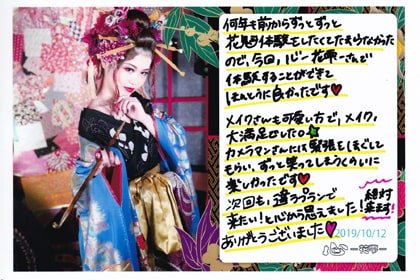 何年も前からずっとずっと
花魁体験をしたくてたまらなかった
ので、今回、心-花雫-さんで
体験することができて
ほんとうに良かったです♥
メイクさんも可愛い方で、メイク、
大満足でした。★
カメラマンさんには緊張をほぐして
もらい、ずっと笑ってしまうくらいに
楽しかったです♥
次回も、違うプランで
来たい！と心から思えました！
絶対
来ます！
ありがとうございました♥
2019/10/12